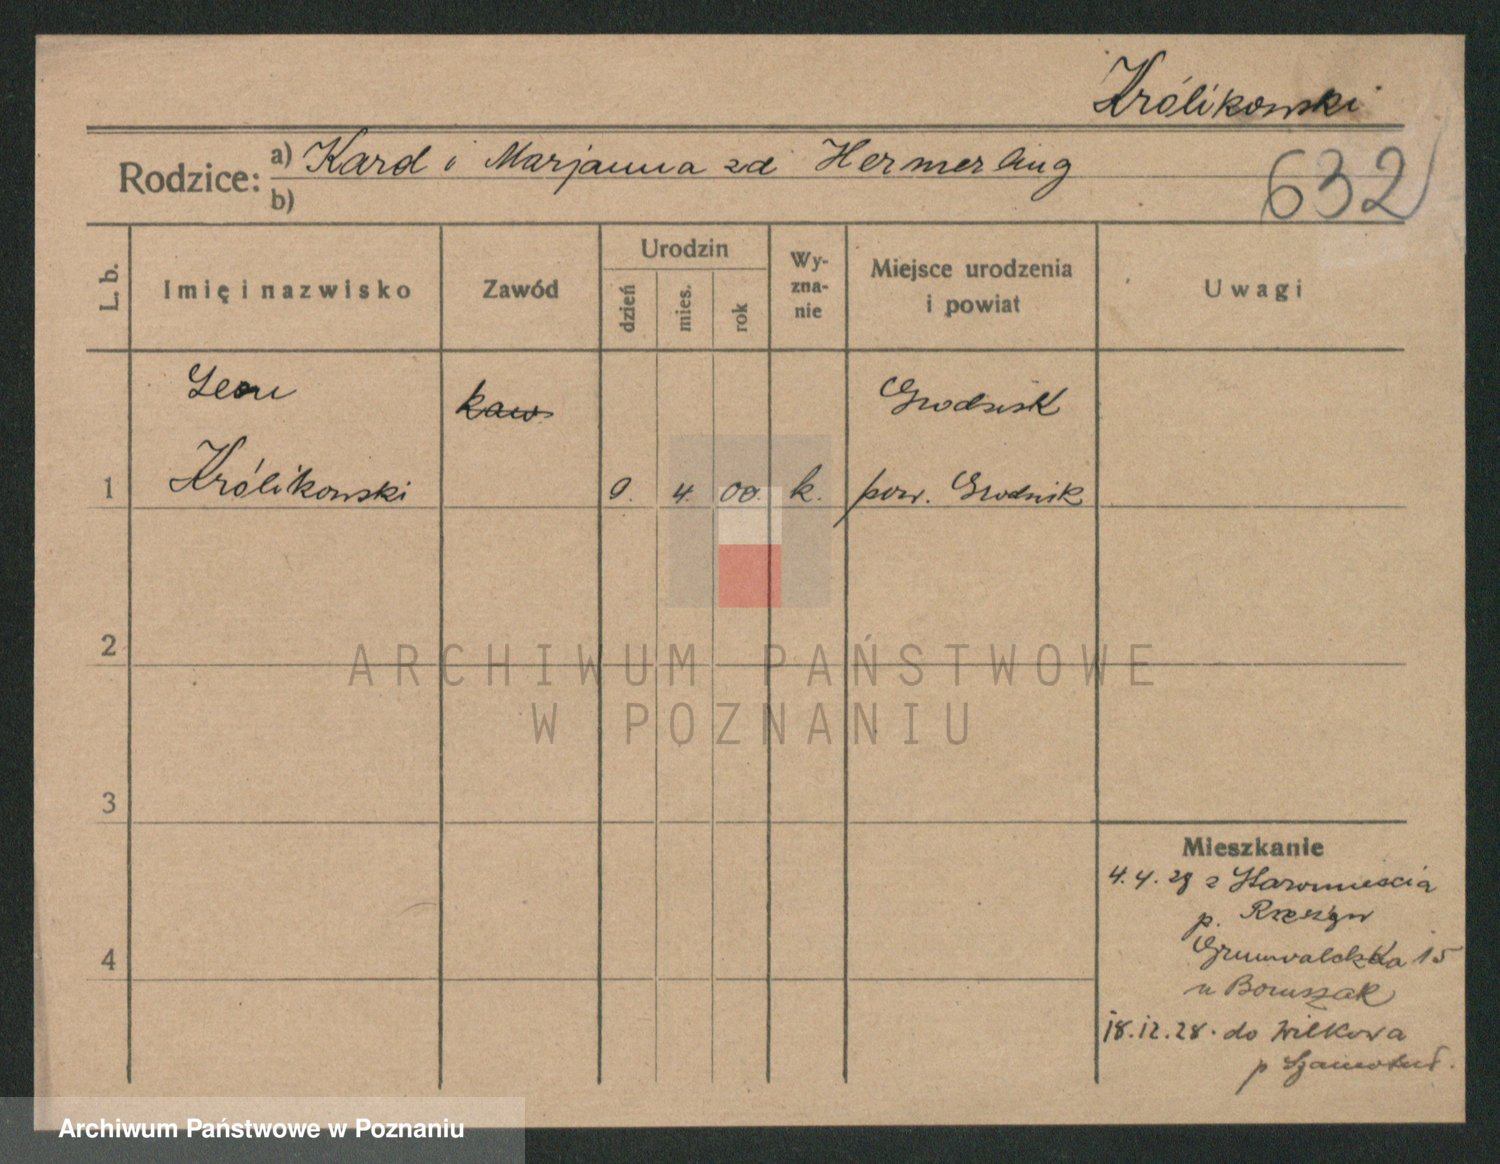 Królikowski
Rodzice: a) Karol i Marjanna zd Hermerling
b)
632
L. b.
Imię i nazwisko
Zawód
Urodzin
dzień
mies.
rok
Wy-
zna-
nie
Miejsce urodzenia
i powiat
Uwagi
Leon
kaw.
Grodzisk
1 Królikowski 9. 4. 00. k. pow. Grodzisk
2
3
4
Mieszkanie
4.4.28 z Staromieścia
p. Rzeszów
Grunwaldzka 15
u Boruszak
18.12.28. do Wilkowa
p Szamotuł.
ARCHIWUM PAŃSTWOWE
W POZNANIU
Archiwum Państwowe w Poznaniu